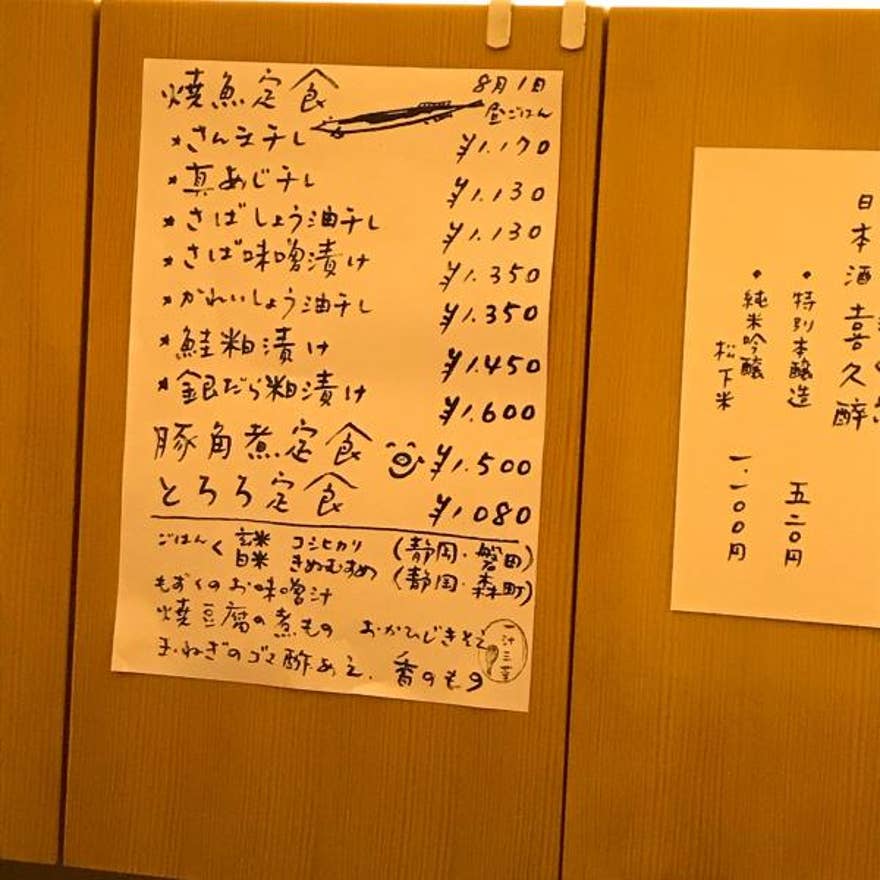 焼魚定食
8月1日
昼ごはん
*さんま干し ¥1.170
*真あじ干し ¥1.130
*さばしょう油干し ¥1.130
*さば味噌漬け ¥1.350
*かれいしょう油干し ¥1.350
*鮭粕漬け ¥1.450
*銀だら粕漬け ¥1.600
豚角煮定食 ¥1.500
とろろ定食 ¥1.080
ごはん
玄米 コシヒカリ (静岡・磐田)
白米 きぬむすめ (静岡・森町)
もずくのお味噌汁
焼豆腐の煮もの おかひじきそえ
玉ねぎのゴマ酢あえ. 香のもの
一汁三菜
日本酒 喜久醉
・特別本醸造 五二〇円
・純米吟醸
松下米 一.一〇〇円